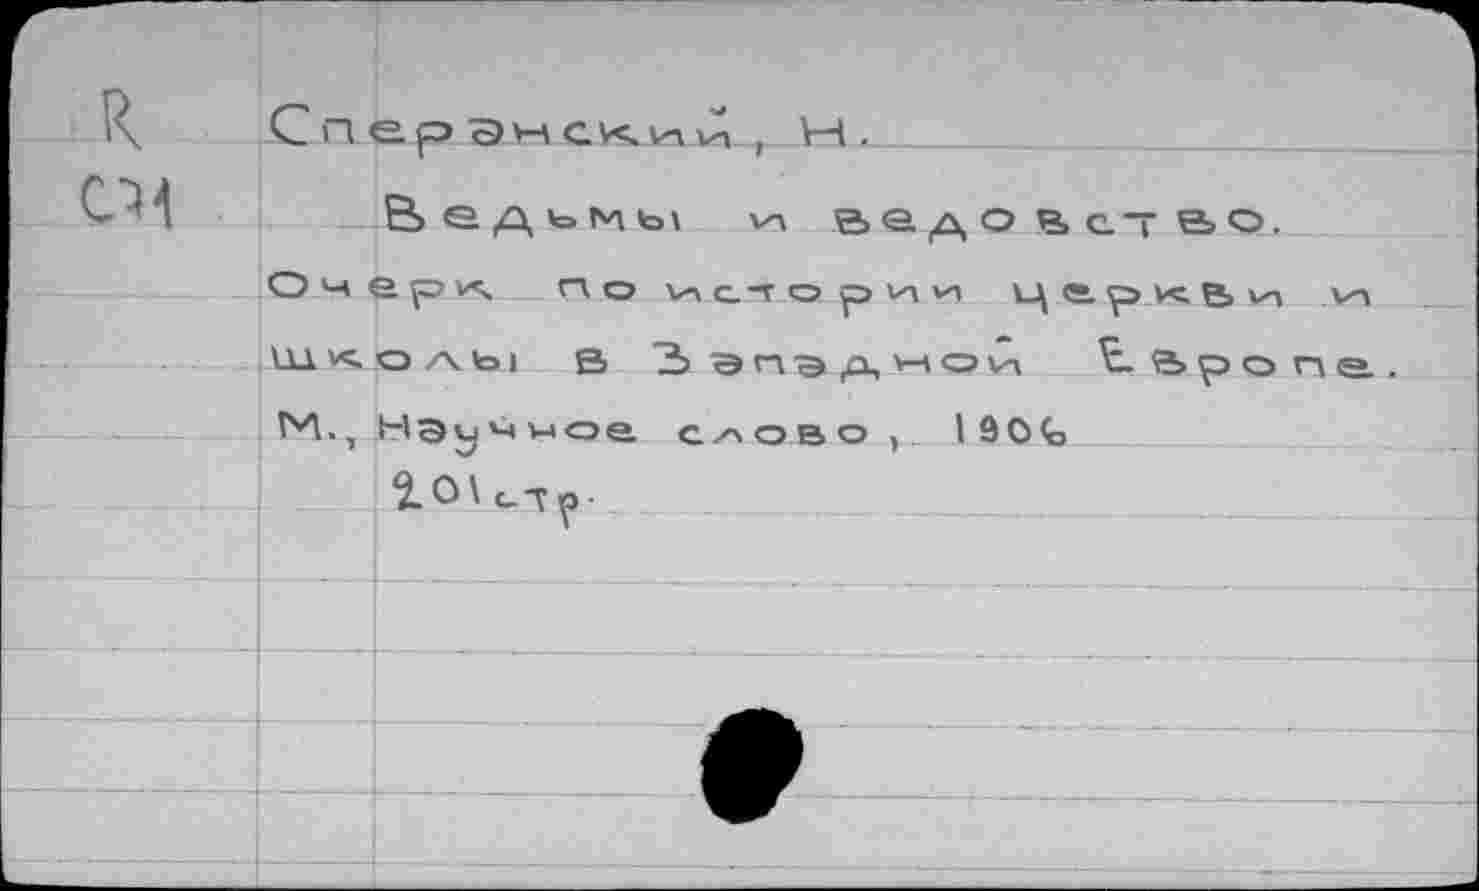 R
Сперанский, Н.
С71
Ведьмы и ведовство.
Очерк по истории церкви и
школы в Западной Европе.
М., Научное слово, 1906
201 стр.